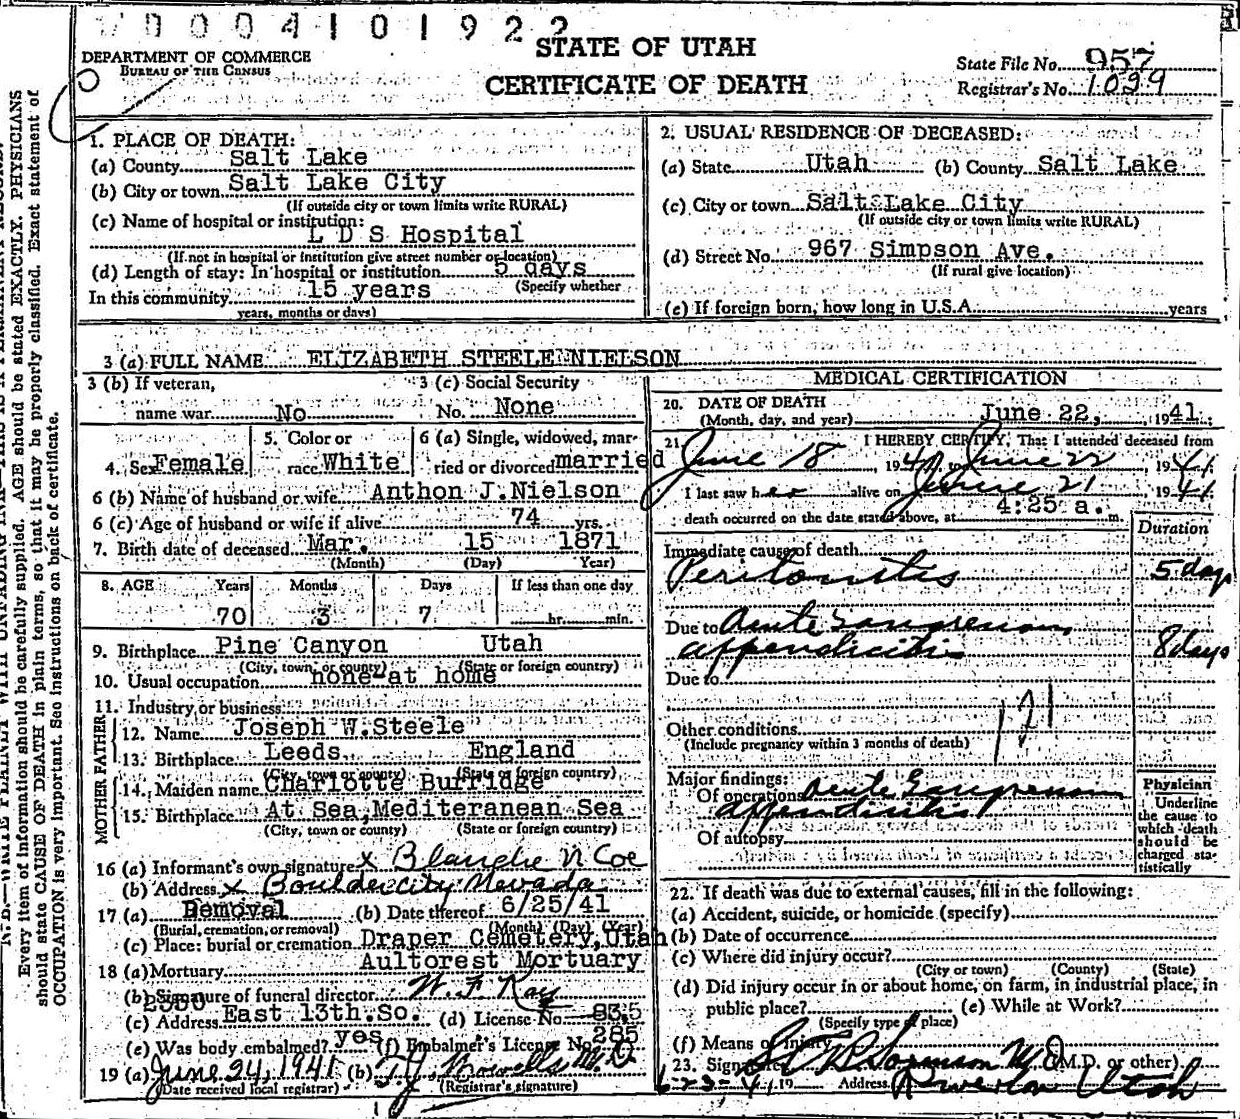 V D 0 0 4 1 0 1 9 2 2
DEPARTMENT OF COMMERCE
BUREAU OF THE CENSUS
STATE OF UTAH
CERTIFICATE OF DEATH
State File No. 957
Registrar's No. 1099
Every item of information should be carefully supplied. AGE should be stated EXACTLY. PHYSICIANS
should state CAUSE OF DEATH in plain terms, so that it may be properly classified. Exact statement of
OCCUPATION is very important. See instructions on back of certificate.
1. PLACE OF DEATH:
(a) County Salt Lake
(b) City or town Salt Lake City
(If outside city or town limits write RURAL)
(c) Name of hospital or institution:
L D S Hospital
(If not in hospital or institution give street number or location)
(d) Length of stay: In hospital or institution 5 days
(Specify whether
In this community 15 years
years, months or days)
2. USUAL RESIDENCE OF DECEASED:
(a) State Utah (b) County Salt Lake
(c) City or town Salt Lake City
(If outside city or town limits write RURAL)
(d) Street No. 967 Simpson Ave.
(If rural give location)
(e) If foreign born, how long in U.S.A. years
3 (a) FULL NAME ELIZABETH STEELE NIELSON
3 (b) If veteran, 3 (c) Social Security
name war No No. None
4. Sex Female 5. Color or race White 6 (a) Single, widowed, married or divorced married
6 (b) Name of husband or wife Anthon J.Nielson
6 (c) Age of husband or wife if alive 74 yrs.
7. Birth date of deceased Mar. 15 1871
(Month) (Day) Year)
8. AGE Years Months Days If less than one day
70 3 7 hr. min.
9. Birthplace Pine Canyon Utah
(City, town, or county) (State or foreign country)
10. Usual occupation none-at home
11. Industry or business
FATHER
12. Name Joseph W.Steele
13. Birthplace Leeds England
(City, town or county) (State or foreign country)
MOTHER
14. Maiden name Charlotte Burridge
15. Birthplace At Sea,Mediteranean Sea
(City, town or county) (State or foreign country)
16 (a) Informant's own signature x Blanche N Coe
(b) Address x Boulder city Nevada
17 (a) Removal (b) Date thereof 6/25/41
(Burial, cremation, or removal) (Month) (Day) (Year)
(c) Place: burial or cremation Draper Cemetery,Utah
18 (a) Mortuary Aultorest Mortuary
(b) Signature of funeral director W. F. Ray
(c) Address East 13th.So. (d) License No.
(e) Was body embalmed? yes (f) Embalmer's License No. 285
19 (a) June 24, 1941 (b) T. J. Howells M.D
(Date received local registrar) (Registrar's signature)
MEDICAL CERTIFICATION
20. DATE OF DEATH
(Month, day, and year) June 22, 1941
21. I HEREBY CERTIFY, That I attended deceased from
June 18 1941, to June 22 1941
I last saw her alive on June 21 1941
death occurred on the date stated above, at 4:25 a. m.
Duration
Immediate cause of death
Peritonitis 5 days
Due to Acute Gangrenous
appendicitis 8 days
Due to
Other conditions 121
(Include pregnancy within 3 months of death)
Major findings:
Of operations Acute Gangrenous
appendicitis
Of autopsy
Physician
Underline
the cause to
which death
should be
charged sta-
tistically
22. If death was due to external causes, fill in the following:
(a) Accident, suicide, or homicide (specify)
(b) Date of occurrence
(c) Where did injury occur?
(City or town) (County) (State)
(d) Did injury occur in or about home, on farm, in industrial place, in
public place? (e) While at Work?
(Specify type of place)
(f) Means of injury
23. Signed Sorenson M.D (M.D. or other)
6-23-41 19 Address Riverton Utah